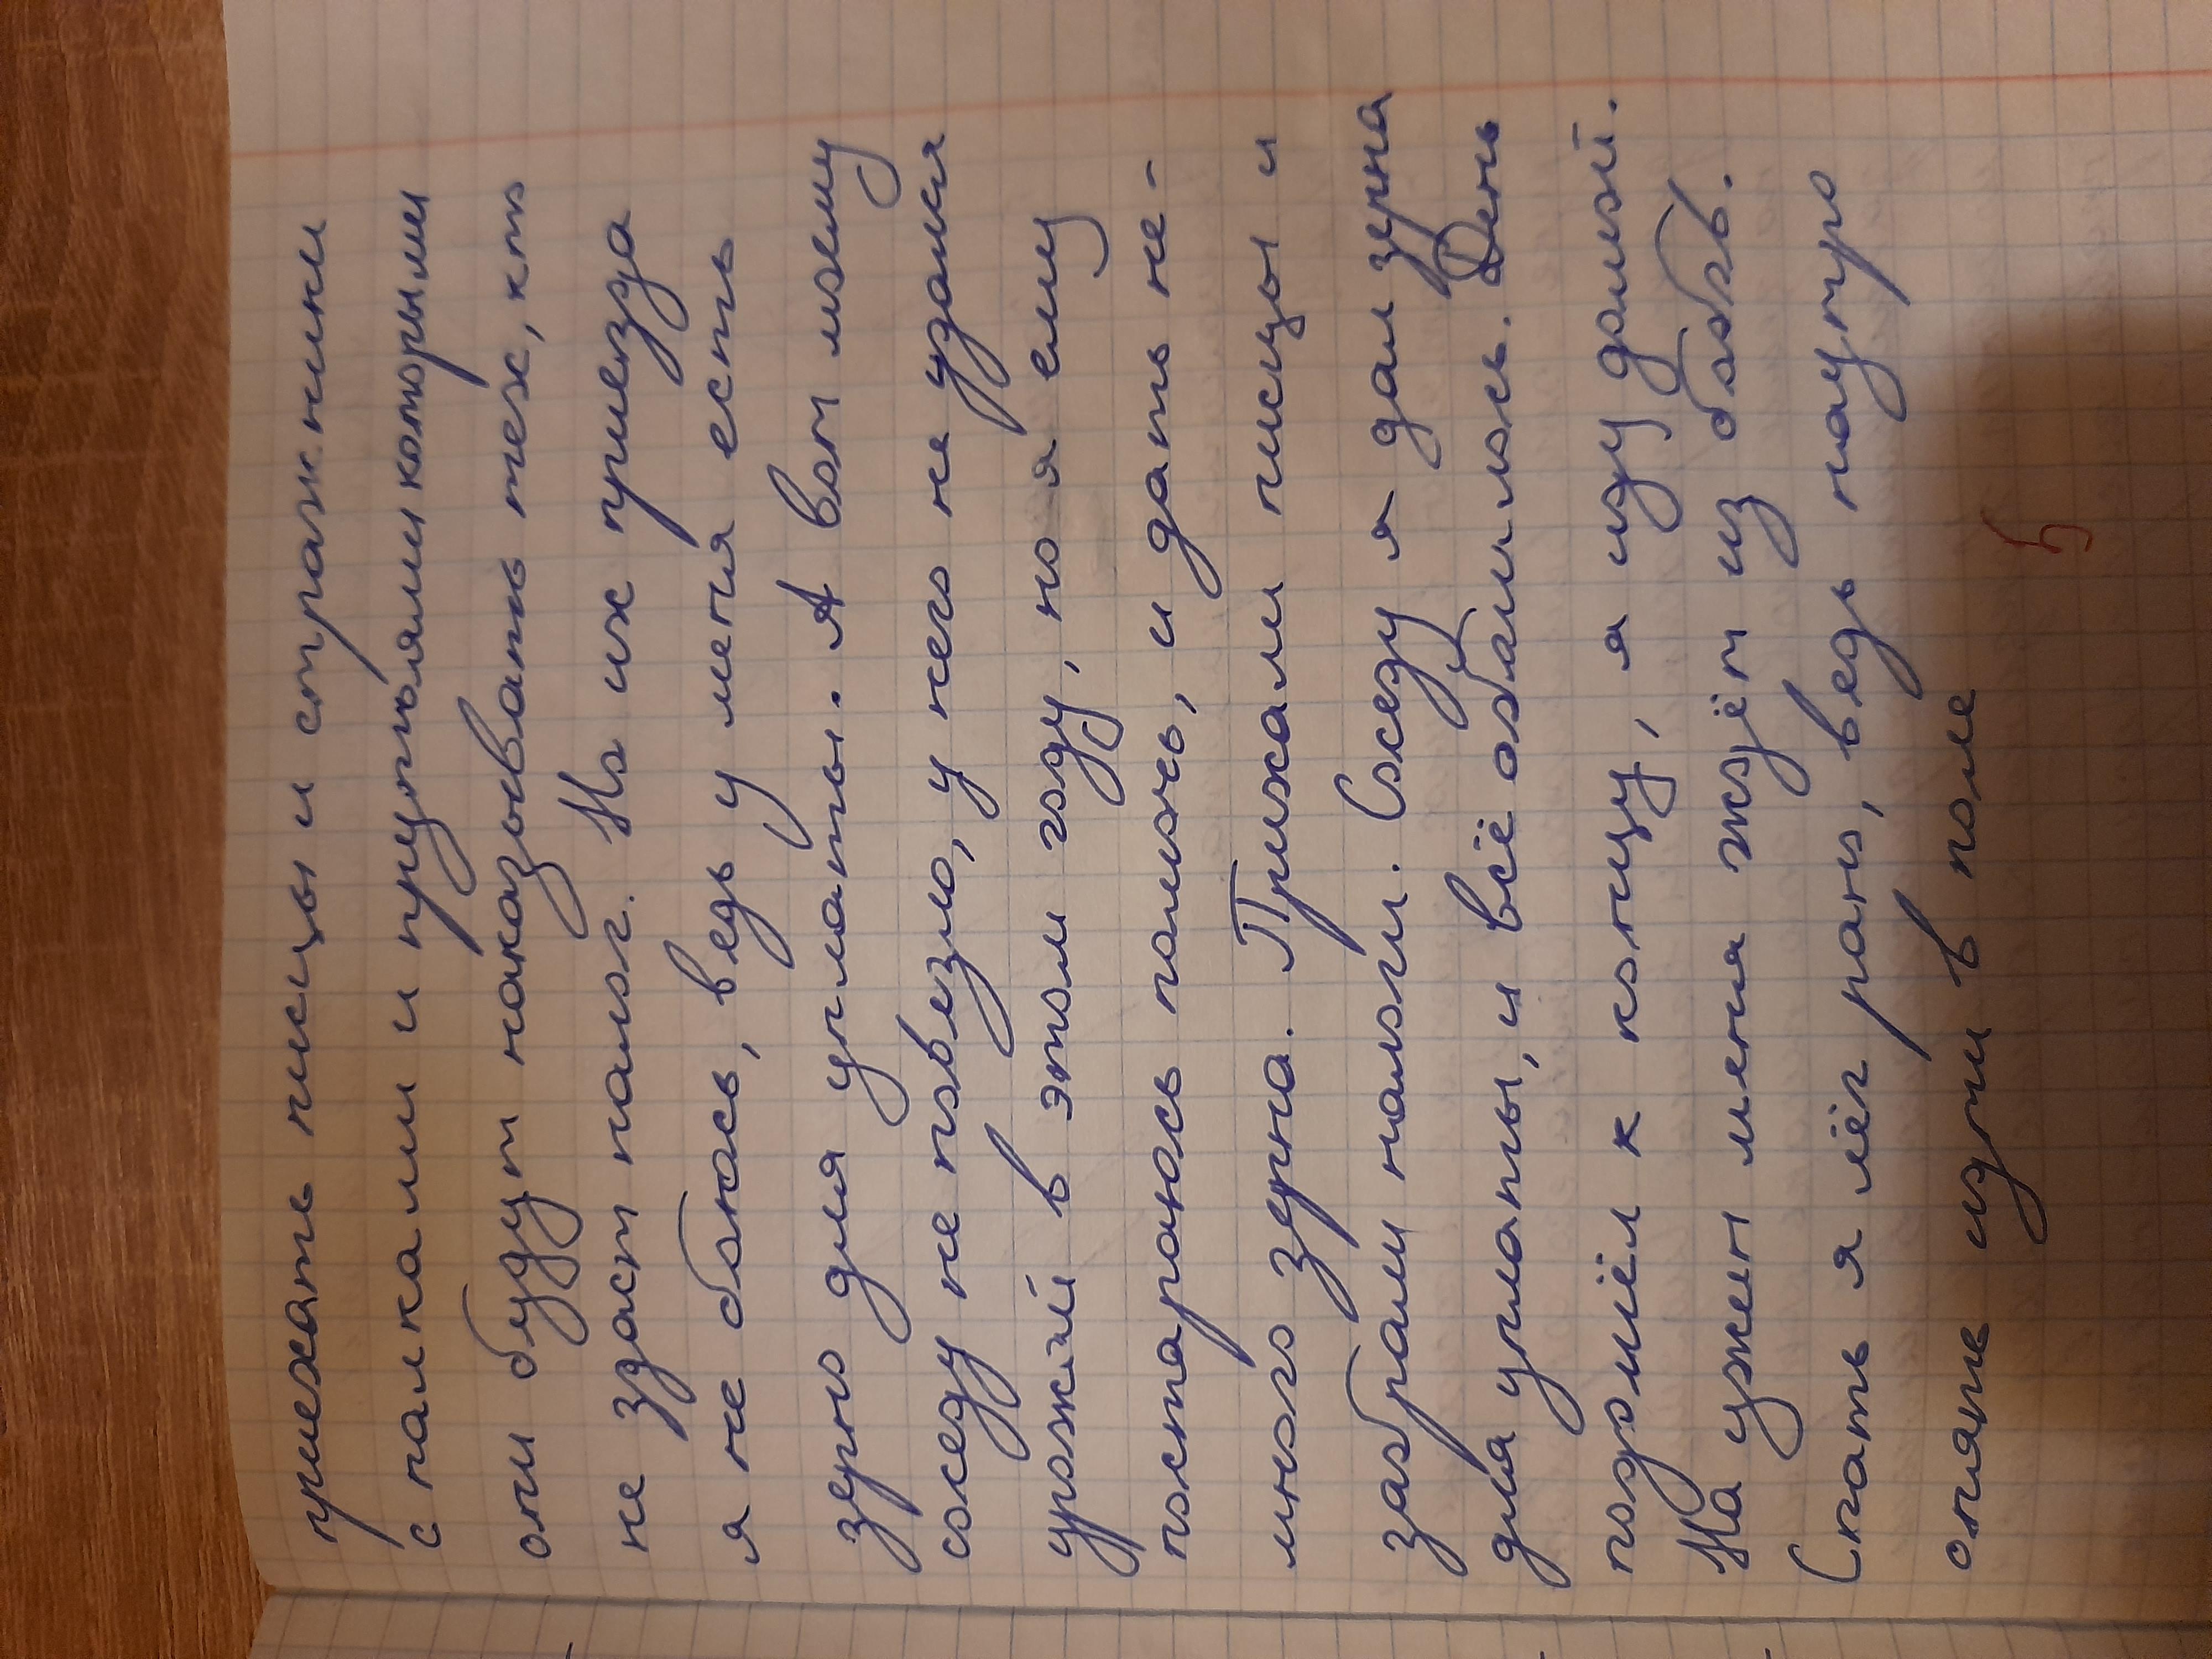 приехать писцы и стражники
с палками и прутьями которыми
они будут наказывать тех, кто
не здаст налог. Но их приезда
я не боюсь, ведь у меня есть
зерно для уплаты. А вот моему
соседу не повезло, у него не удался
урожай в этом году, но я ему
постараюсь помочь, и дать не-
много зерна. Приехали писцы и
забрали налоги. Соседу я дал зерна
для уплаты, и всё обошлось. День
подошёл к концу, я иду домой.
На ужин меня ждёт из бобов.
Спать я лёг рано, ведь наутро
опять идти в поле
5